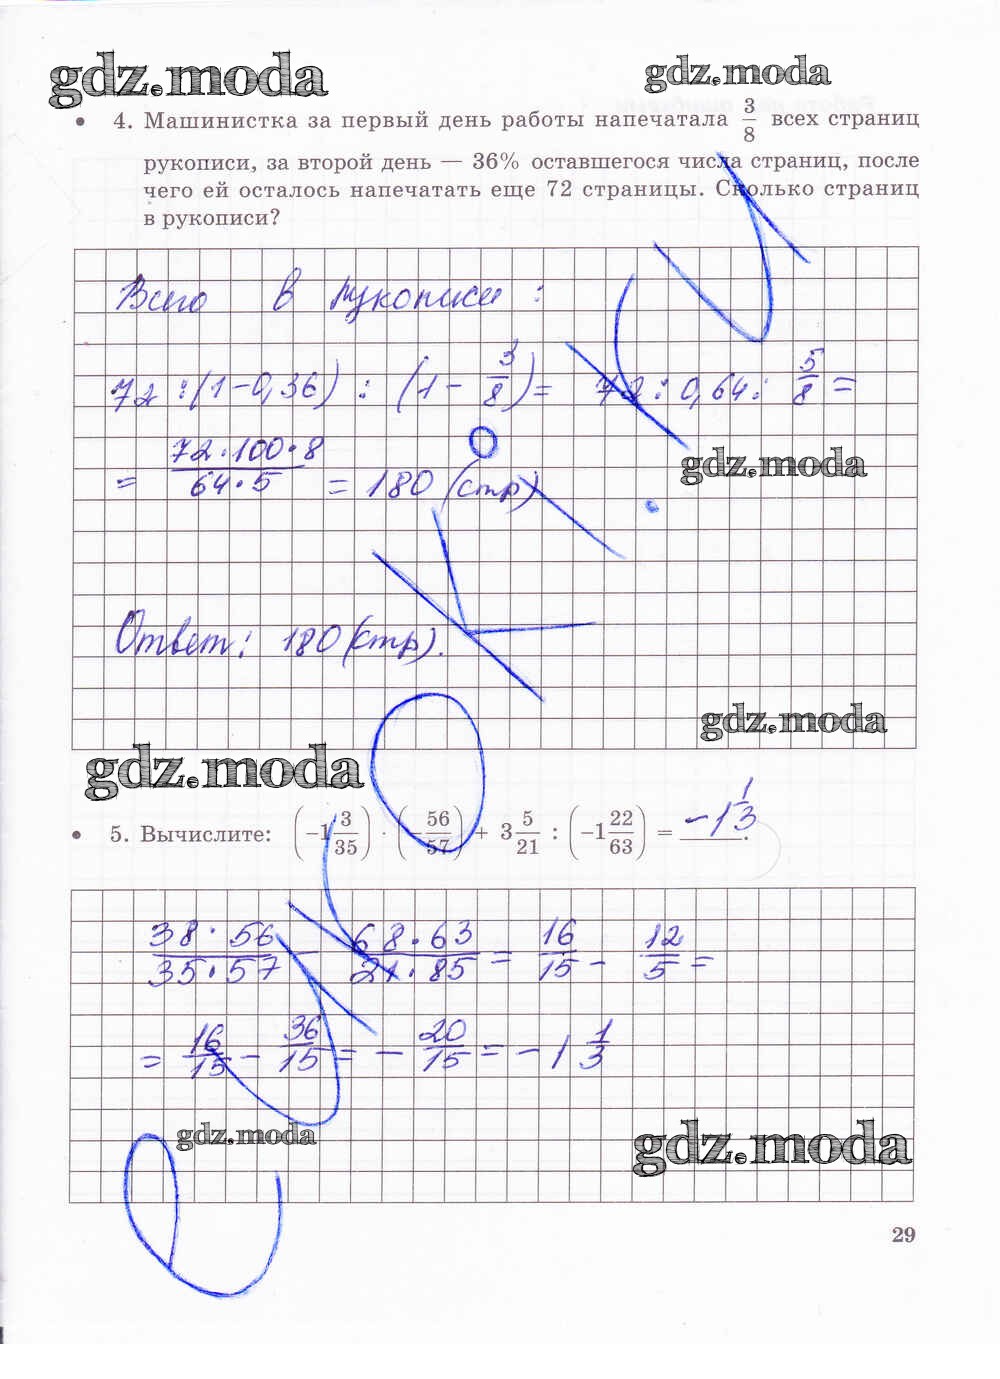 gdz.moda gdz.moda
• 4. Машинистка за первый день работы напечатала 3/8 всех страниц
рукописи, за второй день — 36% оставшегося числа страниц, после
чего ей осталось напечатать еще 72 страницы. Сколько страниц
в рукописи?
Всего в рукописи:
72 : (1 - 0,36) : (1 - 3/8) = 72 : 0,64 : 5/8 =
= 72·100·8/64·5 = 180 (стр)
gdz.moda
Ответ: 180 (стр).
gdz.moda
gdz.moda
• 5. Вычислите: (-1 3/35) · (-56/57) + 3 5/21 : (-1 22/63) = -1 1/3.
38·56/35·57 - 68·63/21·85 = 16/15 - 12/5 =
= 16/15 - 36/15 = - 20/15 = -1 1/3
gdz.moda gdz.moda
29